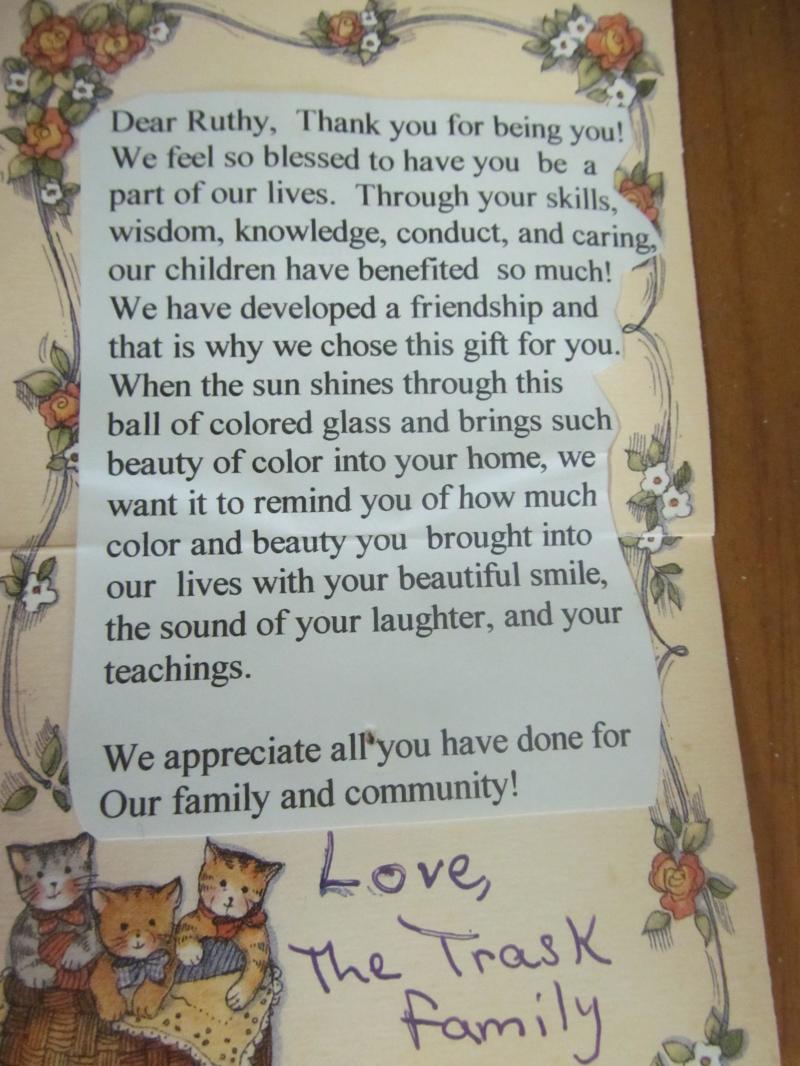 Dear Ruthy,  Thank you for being you!
We feel so blessed to have you  be  a
part of our lives.  Through your skills,
wisdom, knowledge, conduct, and caring,
our children have benefited  so much!
We have developed a friendship and
that is why we chose this gift for you.
When the sun shines through this
ball of colored glass and brings such
beauty of color into your home, we
want it to remind you of how much
color and beauty you  brought into
our  lives with your beautiful smile,
the sound of your laughter, and your
teachings.
We appreciate all you have done for
Our family and community!
Love,
The Trask
Family